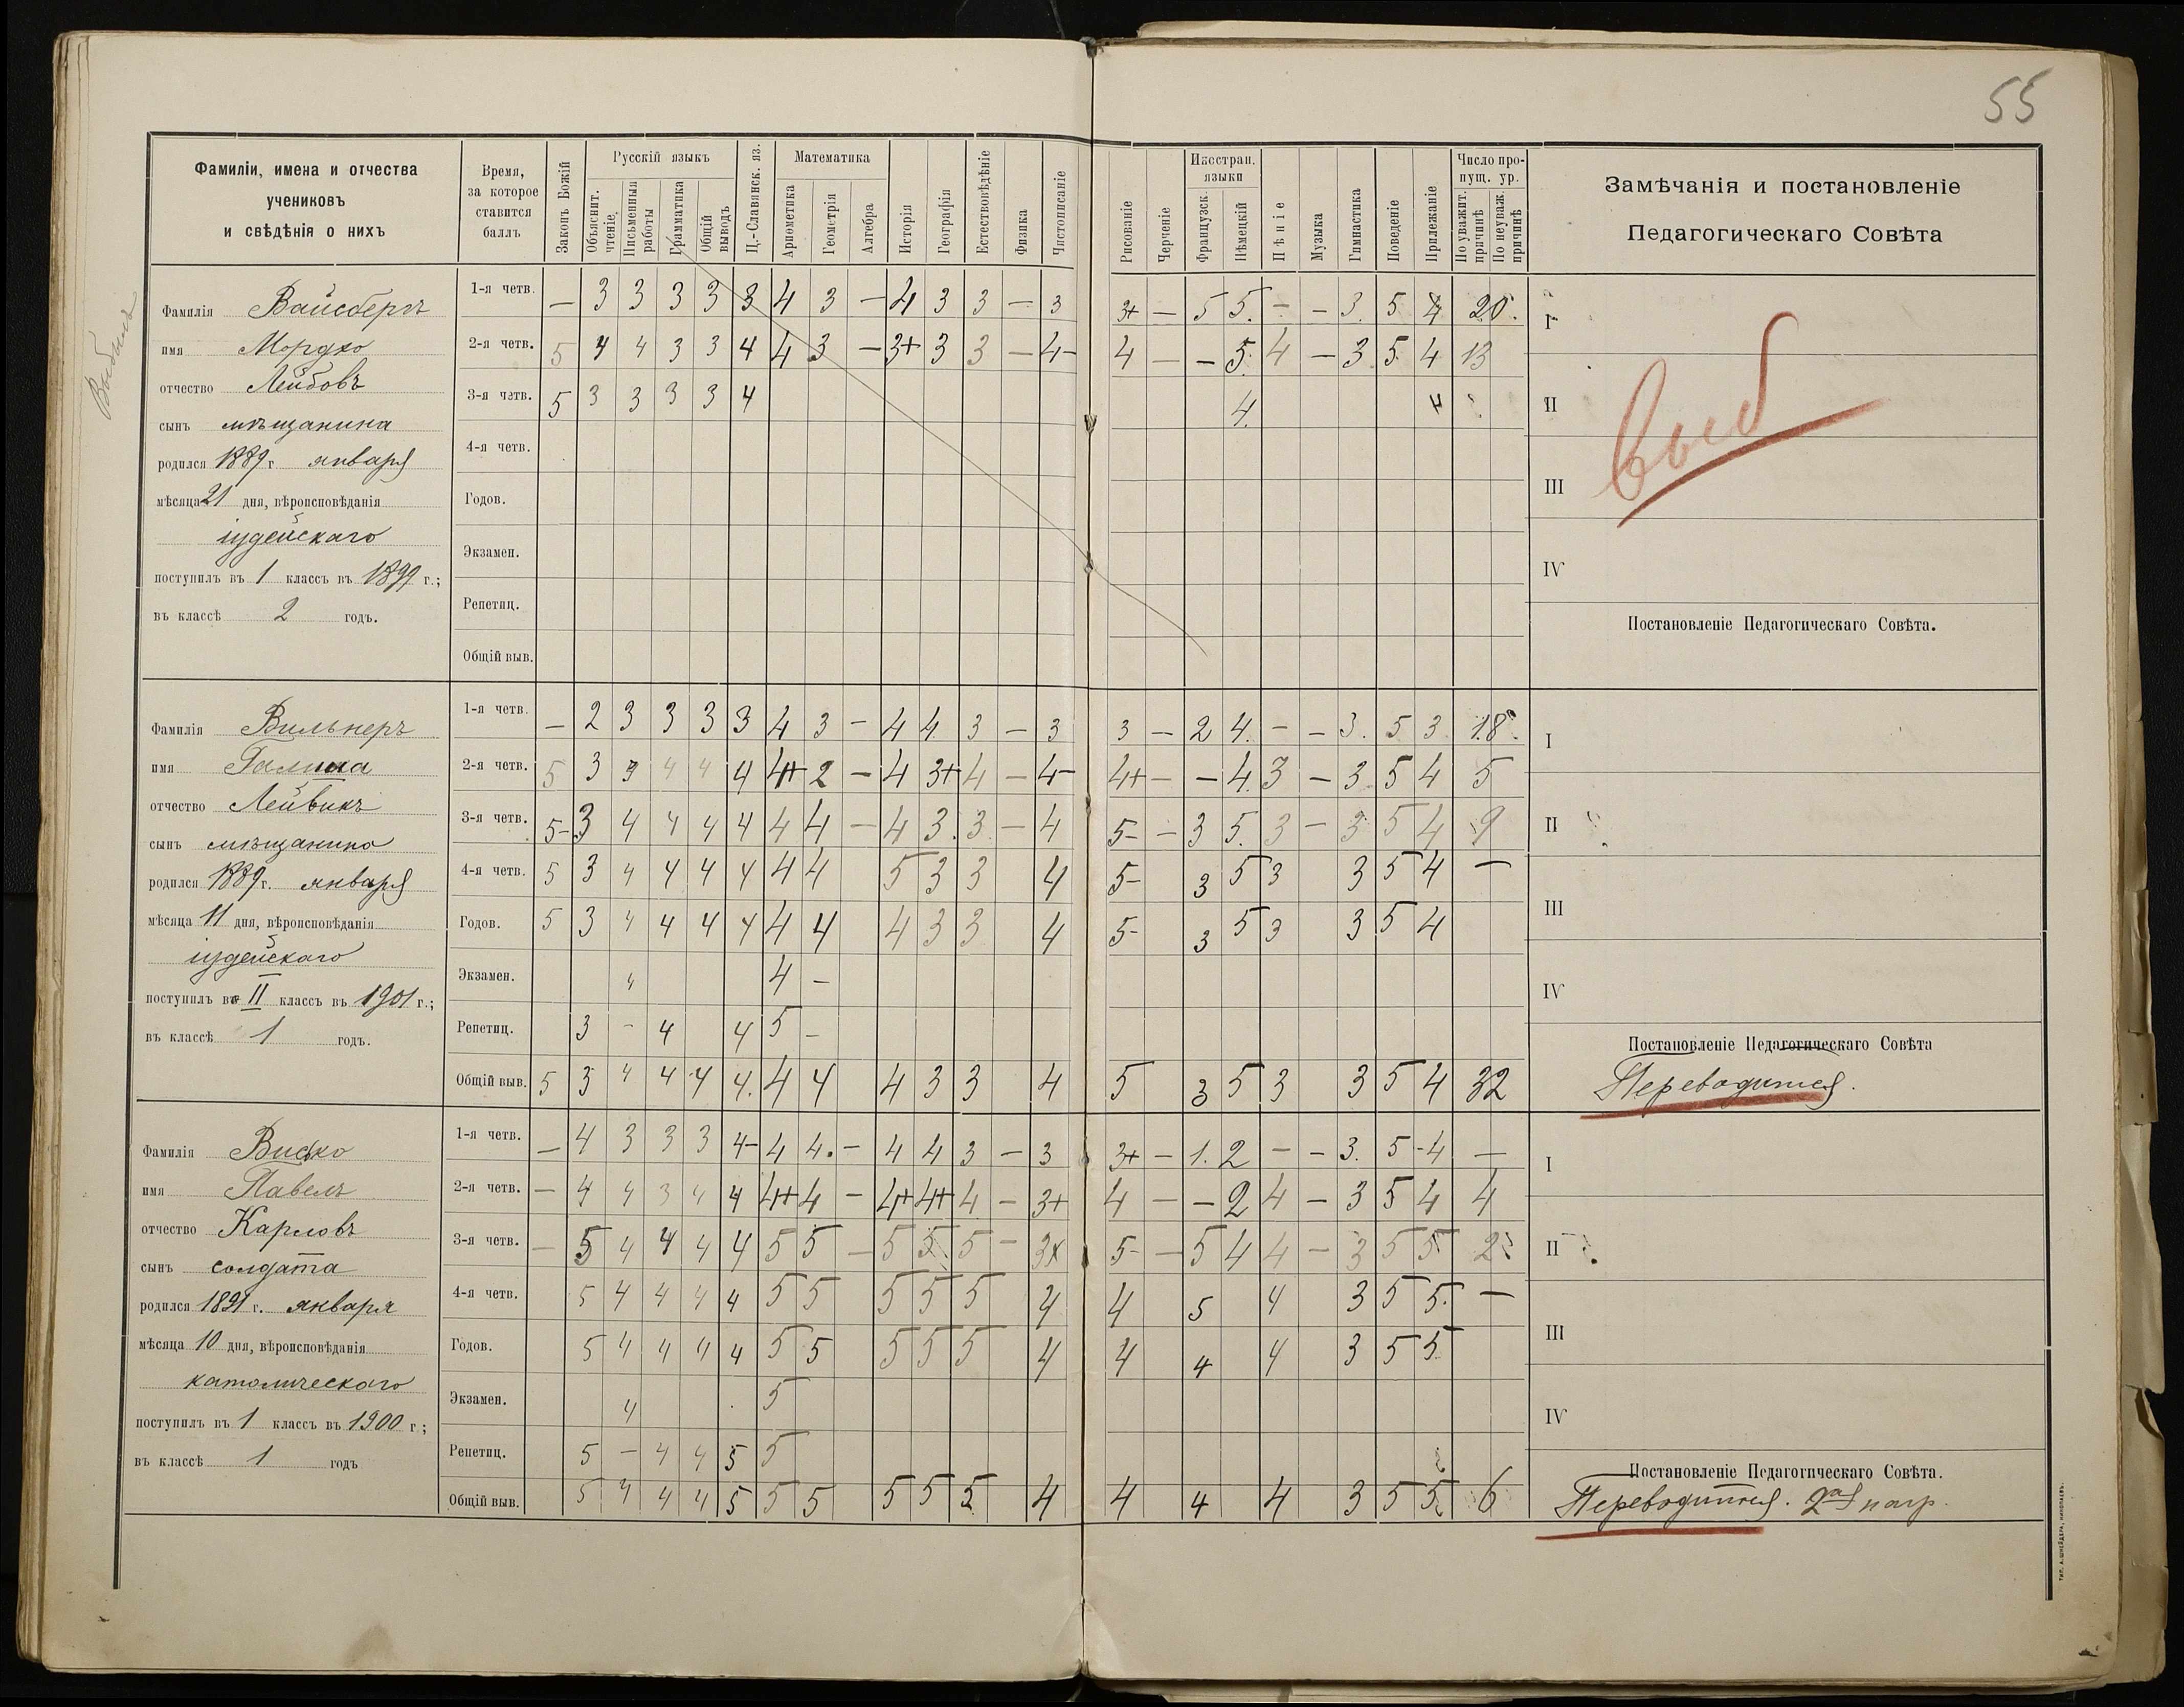 55
Фамиліи, имена и отчества
учениковъ
и свѣдѣнія о нихъ
Время,
за которое
ставится
баллъ
Законъ Божій
Русскій языкъ
Объяснит. чтеніе
Письменныя работы
Грамматика
Общій выводъ
Ц.-Славянск. яз.
Математика
Ариѳметика
Геометрія
Алгебра
Исторія
Географія
Естествовѣдѣніе
Физика
Чистописаніе
Рисованіе
Черченіе
Иностран. языки
Французск.
Нѣмецкій
Пѣніе
Музыка
Гимнастика
Поведеніе
Прилежаніе
Число пропущ. ур.
По уважит. причинѣ
По неуваж. причинѣ
Замѣчанія и постановленіе
Педагогическаго Совѣта
Выбылъ
Фамилія Вайсбергъ
имя Мордко
отчество Лейбовъ
сынъ мѣщанина
родился 1889 г. января
мѣсяца 21 дня, вѣроисповѣданія
іудейскаго
поступилъ въ 1 классъ въ 1899 г.;
въ классѣ 2 годъ.
1-я четв. — 3 3 3 3 3 4 3 — 4 3 3 — 3 3+ — 5 5. — — 3. 5 4 20.
2-я четв. 5 4 4 3 3 4 4 3 — 3+ 3 3 — 4- 4 — — 5. 4 — 3 5 4 13
3-я четв. 5 3 3 3 3 4 4. 4
4-я четв.
Годов.
Экзамен.
Репетиц.
Общій выв.
I
II
III
IV
выб
Постановленіе Педагогическаго Совѣта.
Фамилія Вильнеръ
имя
отчество Лейвикъ
сынъ мѣщанина
родился 1889 г. января
мѣсяца 11 дня, вѣроисповѣданія
іудейскаго
поступилъ въ II классъ въ 1901 г.;
въ классѣ 1 годъ.
1-я четв. — 2 3 3 3 3 4 3 — 4 4 3 — 3 3 — 2 4. — — 3. 5 3 18.
2-я четв. 5 3 3 4 4 4 4+ 2 — 4 3+ 4 — 4- 4+ — — 4. 3 — 3. 5 4 5
3-я четв. 5- 3 4 4 4 4 4 4 — 4 3. 3 — 4 5- — 3 5. 3 — 3 5 4 9
4-я четв. 5 3 4 4 4 4 4 4 5 3 3 4 5- 3 5 3 3 5 4 —
Годов. 5 3 4 4 4 4 4 4 4 3 3 4 5- 3 5 3 3 5 4
Экзамен. 4 4 —
Репетиц. 3 - 4 4 5 —
Общій выв. 5 3 4 4 4 4. 4 4 4 3 3 4 5 3 5 3 3 5 4 32
I
II
III
IV
Постановленіе Педагогическаго Совѣта
Переводится.
Фамилія Виско
имя Павелъ
отчество Карловъ
сынъ солдата
родился 1891 г. января
мѣсяца 10 дня, вѣроисповѣданія
католическаго
поступилъ въ 1 классъ въ 1900 г.;
въ классѣ 1 годъ
1-я четв. — 4 3 3 3 4- 4 4. — 4 4 3 — 3 3+ — 1. 2 — — 3. 5 -4 —
2-я четв. — 4 4 3 4 4 4+ 4 — 4+ 4+ 4 — 3+ 4 — — 2 4 — 3 5 4 4
3-я четв. — 5 4 4 4 4 5 5 — 5 5 5 — 3+ 5- — 5 4 4 — 3 5 5 2
4-я четв. 5 4 4 4 4 5 5 5 5 5 4 4 5 4 3 5 5. —
Годов. 5 4 4 4 4 5 5 5 5 5 4 4 4 4 3 5 5
Экзамен. 4 5
Репетиц. 5 — 4 4 5 5
Общій выв. 5 4 4 4 5 5 5 5 5 5 4 4 4 4 3 5 5 6
I
II
III
IV
Постановленіе Педагогическаго Совѣта.
Переводится. 2ая нагр.
ТИП. А. ШНЕЙДЕРА, НИКОЛАЕВЪ.